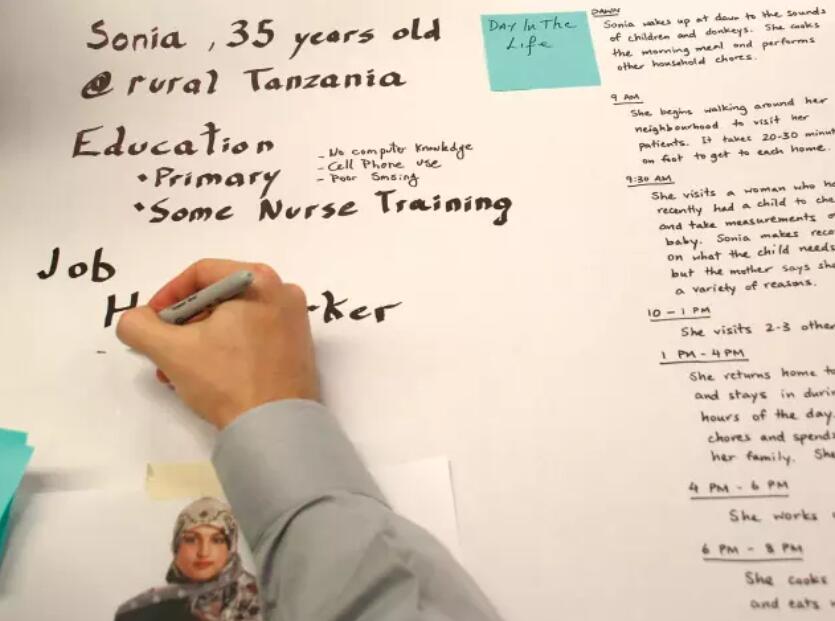 Sonia , 35 years old
@ rural Tanzania
Education
• Primary
• Some Nurse Training
- No computer knowledge
- Cell Phone use
- Poor Smsing
Job
H rker
-
DAY In The
Life
DAWN
Sonia wakes up at dawn to the sounds
of children and donkeys. She cooks
the morning meal and performs
other household chores.
9 AM
She begins walking around her
neighbourhood to visit her
patients. It takes 20-30 minut
on foot to get to each home.
9:30 AM
She visits a woman who ha
recently had a child to che
and take measurements o
baby. Sonia makes reco
on what the child needs
but the mother says she
a variety of reasons.
10 - 1 PM
She visits 2-3 other
1 PM - 4 PM
She returns home to
and stays in durin
hours of the day.
chores and spends
her family. She
4 PM - 6 PM
She works
6 PM - 8 PM
She cooks
and eats w